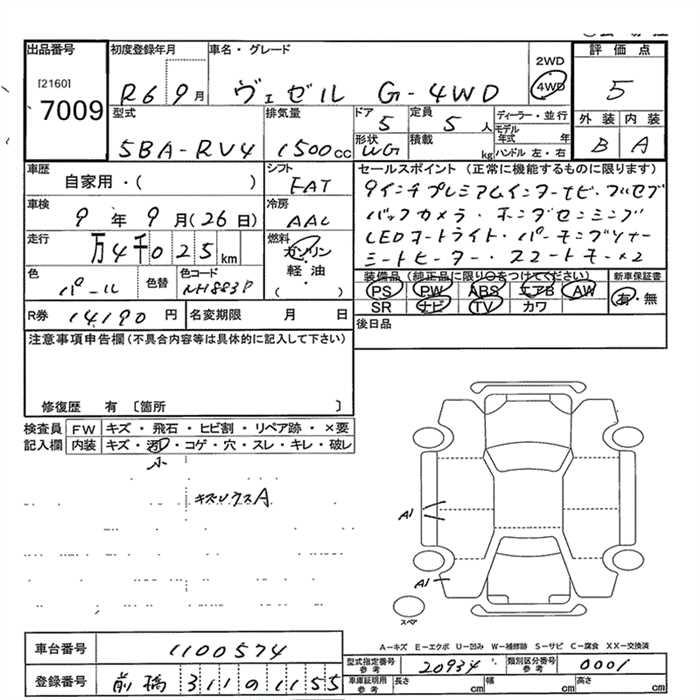 出品番号
[2160]
7009
初度登録年月
R6 9月
車名・グレード
ヴェゼル G-4WD
2WD
4WD
評価点
5
外装 内装
B A
型式
5BA-RV4
排気量
1500cc
ドア
5
定員
5人
ディーラー・並行
モデル年式 年
ハンドル 左・右
形状
WG
積載
kg
車歴
自家用・( )
シフト
FAT
セールスポイント (正常に機能するものに限ります)
9インチプレミアムインターナビ・フルセグ
バックカメラ・ホンダセンシング
LEDオートライト・パーキングソナー
シートヒーター・スマートキー×2
車検
9年9月(26日)
冷房
AAC
走行
万4千025km
燃料
ガソリン
軽油
( )
色
パール
色替
色コード
NH883P
装備品 (純正品に限り○をつけてください)
PS PW ABS エアB AW
SR ナビ TV カワ
新車保証書
有・無
R券
14190円
名変期限 月 日
後日品
注意事項申告欄 (不具合内容等は具体的に記入して下さい)
修復歴 有 〔箇所 〕
検査員記入欄
FW キズ・飛石・ヒビ割・リペア跡・×要
内装 キズ・汚・コゲ・穴・スレ・キレ・破レ
小
A1
A1
スペア
A-キズ E-エクボ U-凹み W-補修跡 S-サビ C-腐食 XX-交換済
車台番号
1100574
型式指定番号
参考
20934
類別区分番号
参考
0001
登録番号
前橋 311 の 1155
車庫証明用
参考
長さ cm
幅 cm
高さ cm